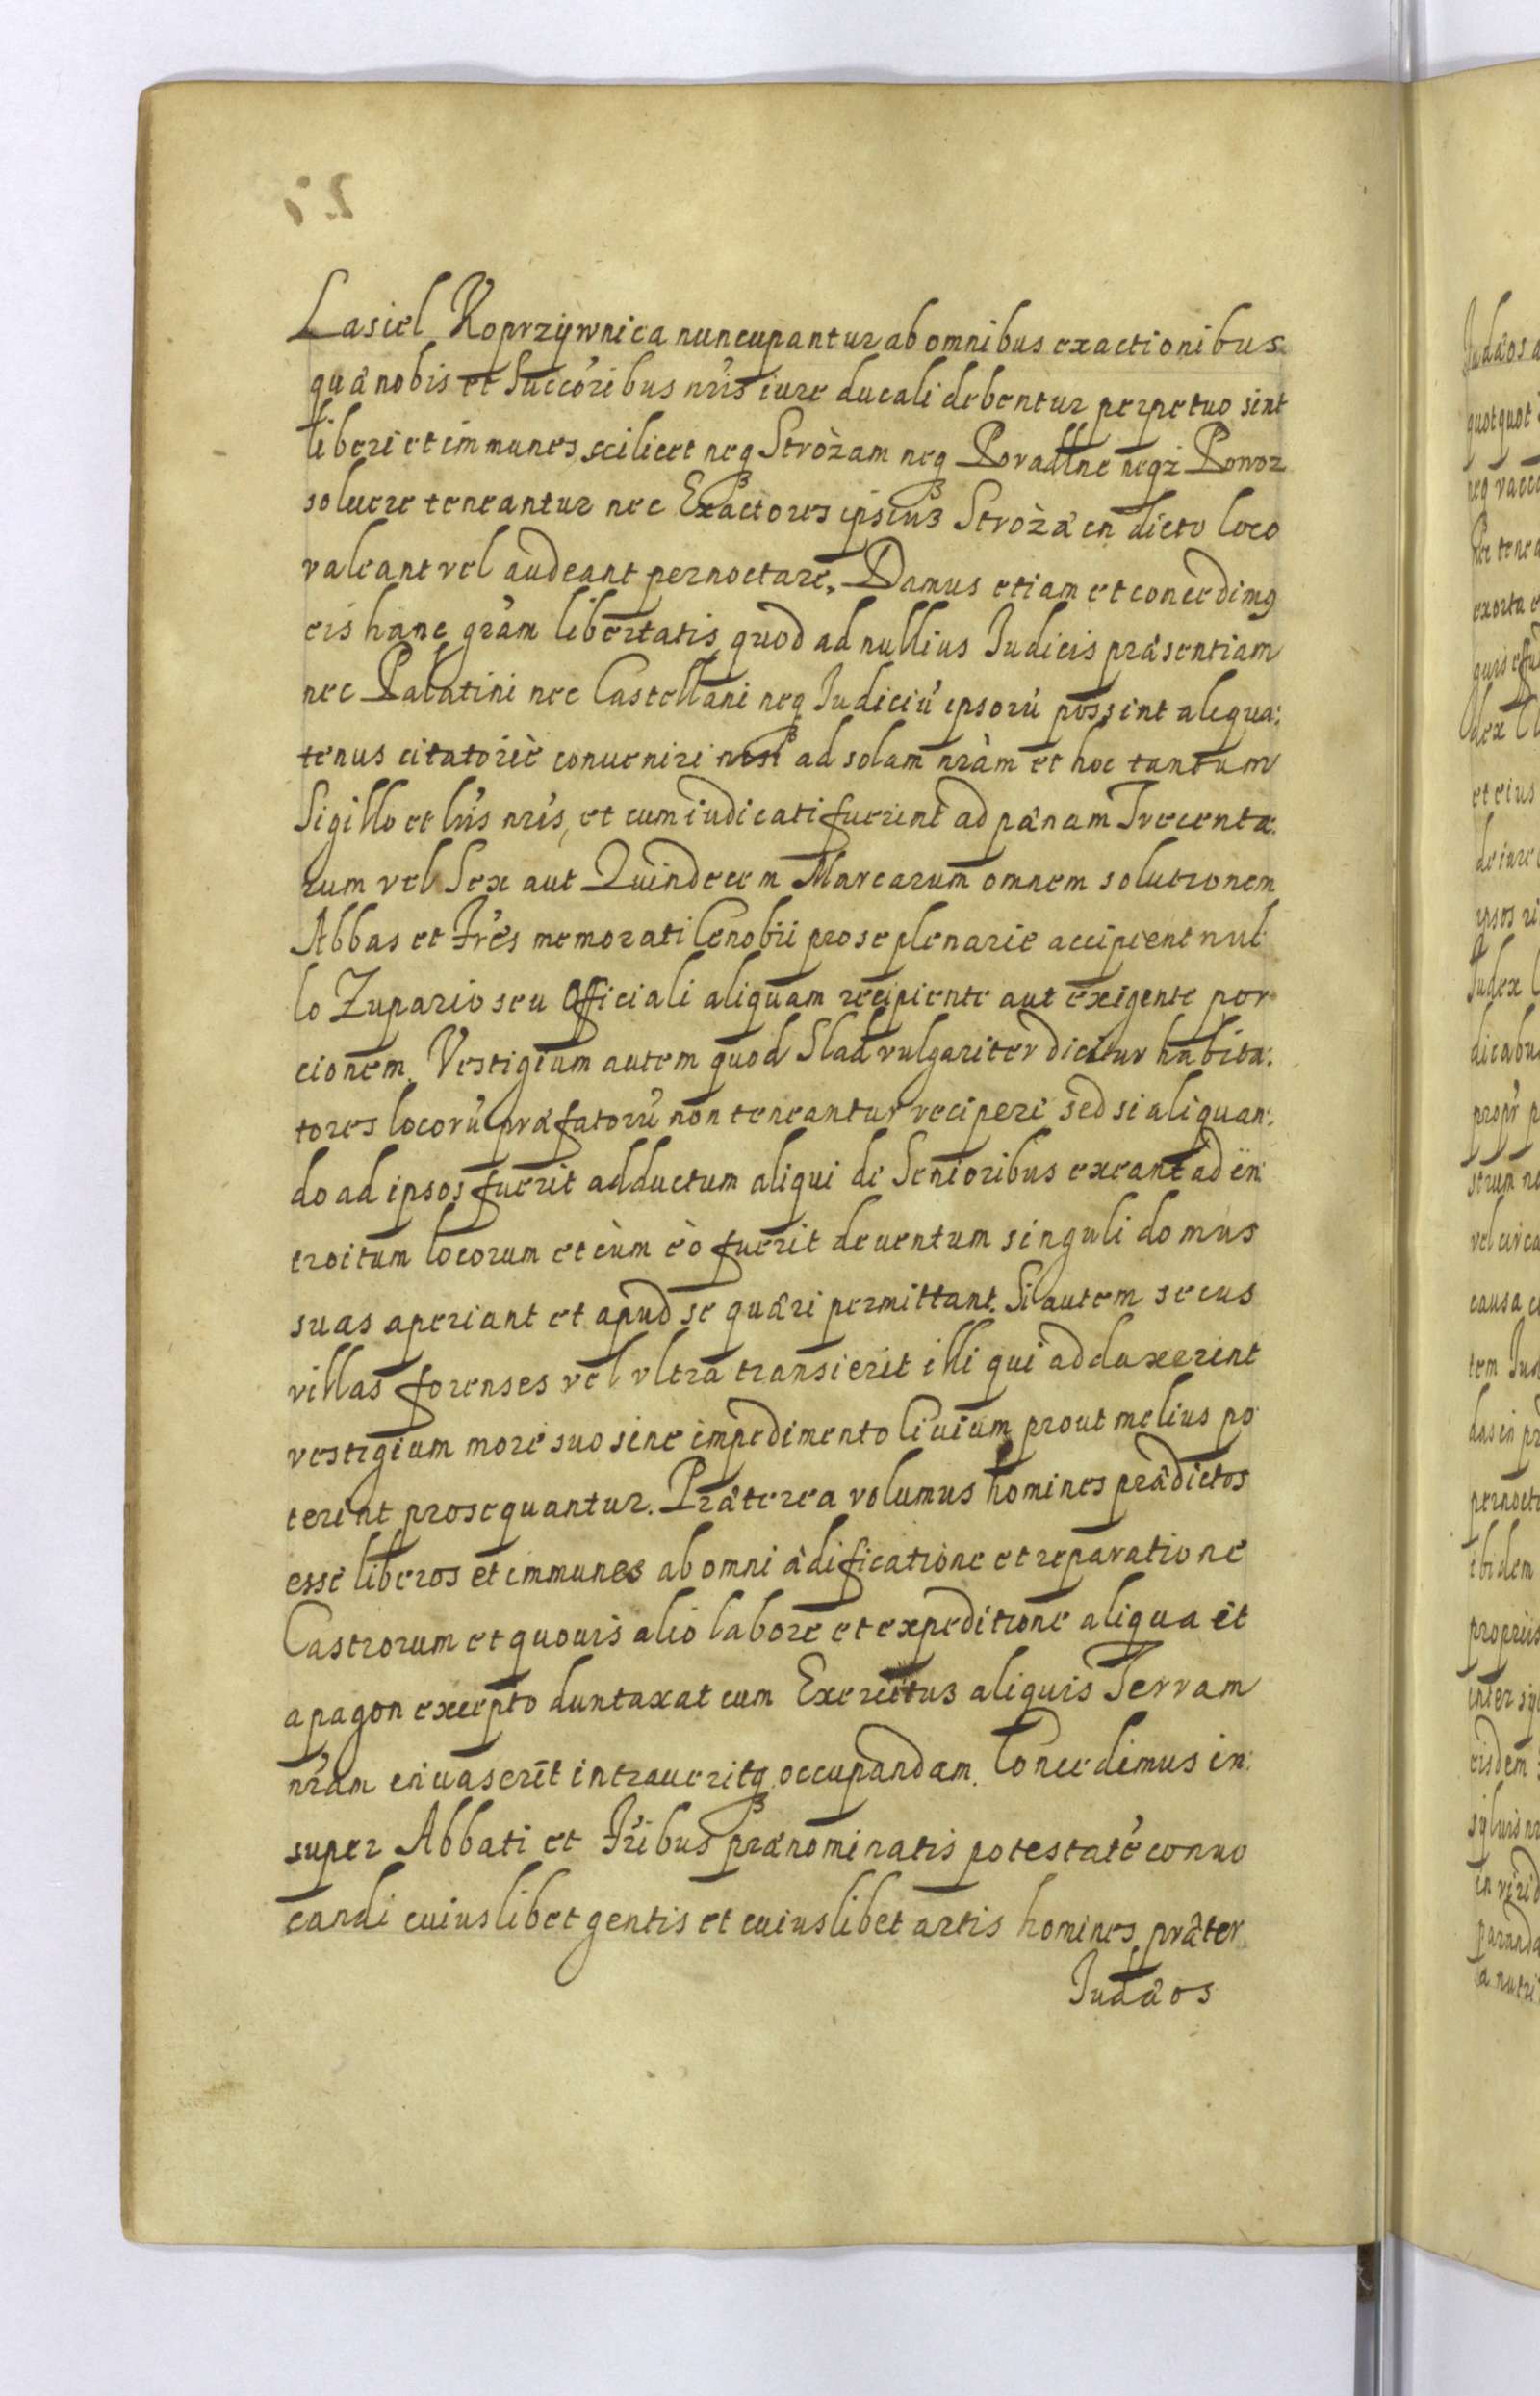 Lasiel Koprzÿwnica nuncupantur ab omnibus exactionibus
quæ nobis et Succ'oribus nr'is iure ducali debentur perpetuo sint
liberi et immunes, scilicet neq Stròżam neq Poradlne neqz Powoz
soluere teneantur nec Exactores ipsius Stròżæ in dicto loco
valeant vel audeant pernoctare. Damus etiam et concedimq
eis hanc gr'am libertatis, quod ad nullius Iudicis præsentiam
nec Palatini nec Castellani neq Iudiciu' ipsoru' possint aliqua:
tenus citatoriè conueniri nisi ad solam nr'am et hoc tantum
Sigillo et lr'is nr'is, et cum iudicati fuerint ad pænam Trecenta:
rum vel Sex aut Quindecem Marcarum omnem solutionem
Abbas et Fr'es memorati Cenobii pro se plenarie accipient nul
lo Zupario seu Officiali aliquam recipiente aut exigente por
cionem. Vestigium autem quod Slad vulgariter dicitur habita:
tores locoru' præfatoru' non teneantur recipere sed si aliquan:
do ad ipsos fuerit adductum aliqui de Senioribus exeant ad in
troitum locorum et cùm eò fuerit deuentum singuli domus
suas aperiant et apud se quæri permittant. Si autem secus
villas forenses vel vltra transierit illi qui adduxerint
vestigium more suo sine impedimento liuium prout melius po
terint prosequantur. Præterea volumus homines prædictos
esse liberos et immunes ab omni ædificatione et reparatione
Castrorum et quouis alio labore et expeditione aliqua et
apagon excepto duntaxat cum Exercitus aliquis Terram
nr'am inuaserit intraueritq occupandam. Concedimus in:
super Abbati et Fr'ibus prænominatis potestate' conuo
candi cuiuslibet gentis et cuiuslibet artis homines præter
Iudæos